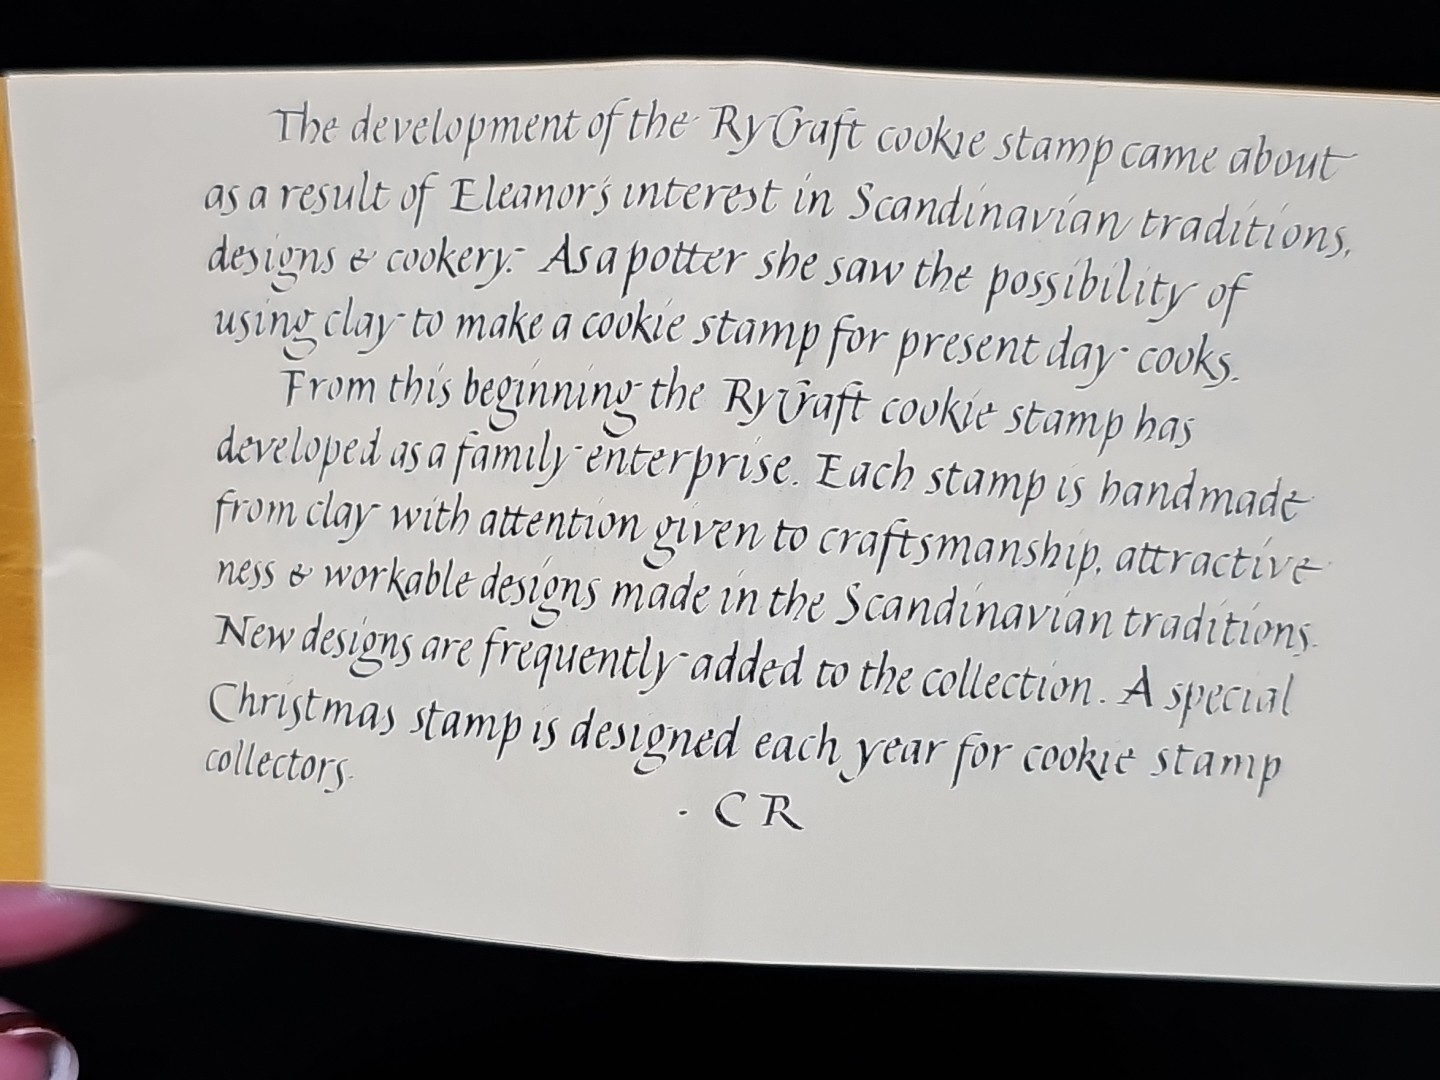 The development of the RyCraft cookie stamp came about
as a result of Eleanor's interest in Scandinavian traditions,
designs & cookery. As a potter she saw the possibility of
using clay to make a cookie stamp for present day cooks.
From this beginning the RyCraft cookie stamp has
developed as a family enterprise. Each stamp is handmade
from clay with attention given to craftsmanship, attractive
ness & workable designs made in the Scandinavian traditions.
New designs are frequently added to the collection. A special
Christmas stamp is designed each year for cookie stamp
collectors.
- CR